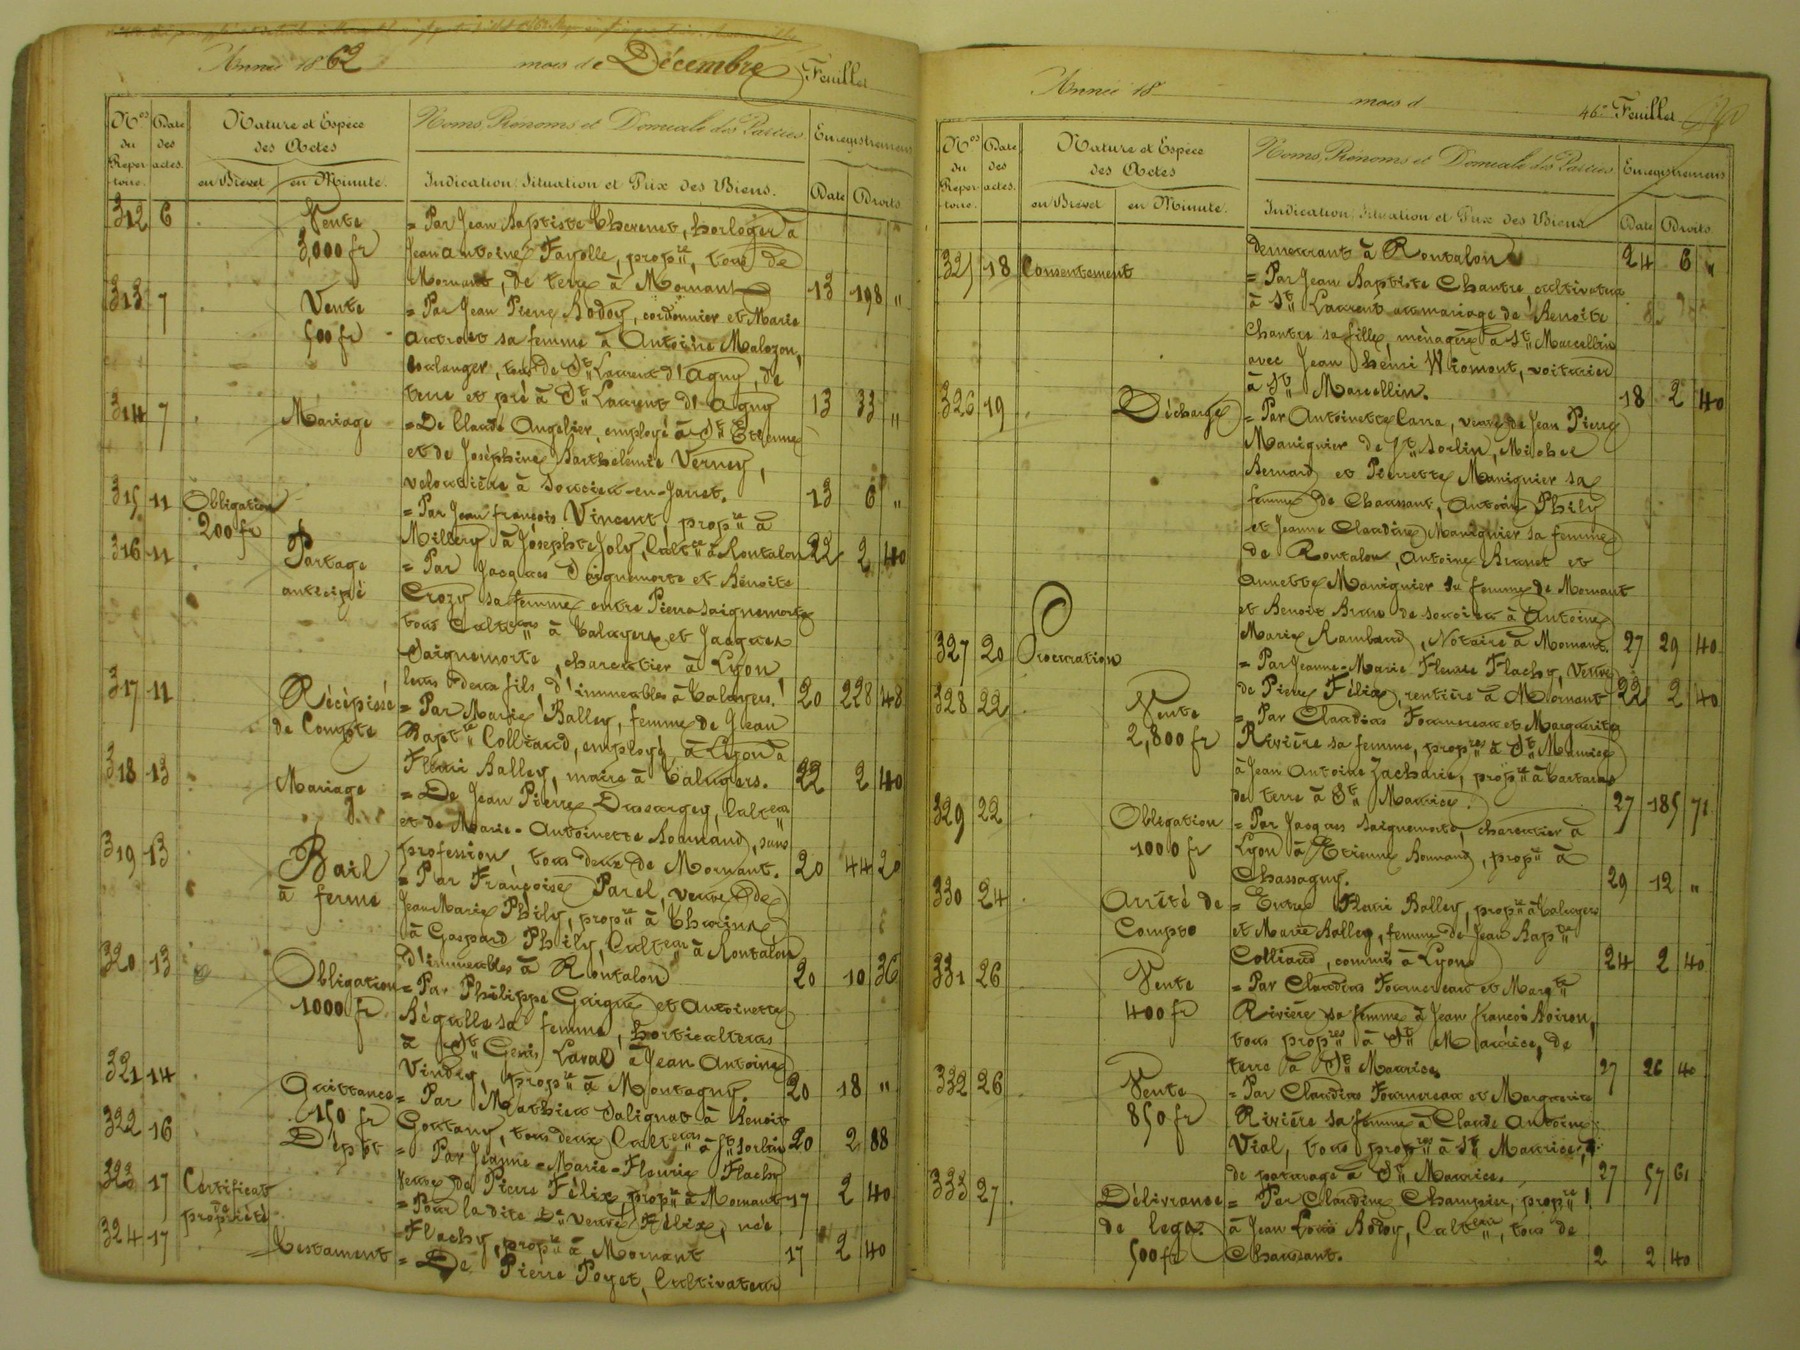 Année 1862 mois de Décembre Feuillet
Nos du Repertoire. Date des actes. Nature et Espèce des Actes en Brevet en Minute. Noms, Prénoms et Domicile des Parties. Indication, Situation et Prix des Biens. Enregistrement Date Droits
312 6 Vente = Par Jean Baptiste Thevenet, horloger à
3,000 fr Jean Antoine Fayolle, propre, tous de
Mornant, de terre à Mornant 13 198 "
313 7 Vente = Par Jean Pierre Bodoy, cordonnier et Marie
500 fr sa femme à Antoine Malozon,
boulanger, tous de St Laurent d'Agny, de
terre et pré à St Laurent d'Agny 13 33 "
314 7 Mariage = De Claude Angelier, employé à St Etienne
et de Joséphine Barthelemie Verney,
veloutière à Soucieu-en-Jarret. 13 6 "
315 11 Obligation = Par Jean françois Vincent, propre à
200 fr Millery à Josephte Joly, Cultre à Rontalon 22 2 40
316 11 Partage = Par Jacques Saignemorte et Bénoite
anticipé Crozy sa femme entre Pierre Saignemorte
tous Culteurs à Taluyers et Jacques
Saignemorte, charcutier à Lyon,
leurs deux fils, d'immeubles à Taluyers. 20 228 48
317 11 Récépissé = Par Marie Balley, femme de Jean
de Compte Baptte Colliard, employé à Lyon à
Fleuri Balley, maire à Taluyers. 22 2 40
318 13 Mariage = De Jean Pierre Dussurgey, Culteur
et de Marie-Antoinette Bonnand, sans
profession, tous deux de Mornant. 20 44 20
319 13 Bail = Par Françoise Parel, veuve de
à ferme Jean Marie Phily, propre à Thurins
à Gaspard Phily, Culteur à Rontalon
d'immeubles à Rontalon 20 10 36
320 13 Obligation = Par Philippe Gaigne et Antoinette
1000 fr sa femme, horticulteurs
à St Genis Laval à Jean Antoine
Vindry, propre à Montagny. 20 18 "
321 14 Quittance = Par Mathieu Salignat à Benoit
150 fr Goutany, tous deux Culteurs à St Sorlin 20 2 88
322 16 Dépôt = Par Jeanne-Marie-Fleurie Flachy
Veuve de Pierre Félix, propre à Mornant 17 2 40
323 17 Certificat = Pour la dite De veuve Félix, née
de propriété Flachy, propre à Mornant 17 2 40
324 17 Testament = De Pierre Poyet, Cultivateur
Année 18 mois d 46e Feuillet
Nos du Repertoire. Date des actes. Nature et Espèce des Actes en Brevet en Minute. Noms, Prénoms et Domicile des Parties. Indication, Situation et Prix des Biens Enregistrement Date Droits.
demeurant à Rontalon 24 6 "
325 18 Consentement = Par Jean Baptiste Chantre cultivateur
à St Laurent au mariage de Benoite
Chantre sa fille, ménagère à St Marcellin
avec Jean henri Wiomont, voiturier
à St Marcellin. 18 2 40
326 19 Décharge = Par Antoinette Carra, veuve de Jean Pierre
Manignier de St Sorlin, Michel
Bernard et Pierrette Manignier sa
femme de Chaussant, Antoine Phily
et Jeanne Claudine Manignier sa femme
de Rontalon, Antoine Brunet et
Annette Manignier sa femme de Mornant
et Benoit de Soucieu à Antoine
Marie Rambaud, Notaire à Mornant. 27 29 40
327 20 Procuration = Par Jeanne-Marie Fleurie Flachy, Veuve
de Pierre Félix, rentière à Mornant 22 2 40
328 22 Vente = Par Claudius Fournereau et Marguerite
2,800 fr Rivière sa femme, propres à St Maurice
à Jean Antoine Zacharie, propre à Tartaras
de terre à St Maurice. 27 185 71
329 22 Obligation = Par Jacques Saignemorte, charcutier à
1000 fr Lyon à Etienne Bonnand, propre à
Chassagny. 29 12 "
330 24 Arrêté de = Entre Fleuri Balley, propre à Taluyers
Compte et Marie Balley, femme de Jean Bapte
Colliard, commis à Lyon 24 2 40
331 26 Vente = Par Claudius Fournereau et Margte
400 fr Rivière sa femme à Jean françois Noiron,
tous propres à St Maurice, de
terre à St Maurice 27 26 40
332 26 Vente = Par Claudius Fournereau et Marguerite
850 fr Rivière sa femme à Claude Antoine
Vial, tous propres à St Maurice,
de paturage à St Maurice. 27 57 61
333 27 Délivrance = Par Claudine Champier, propre
de legs. à Jean Louis Bodoy, Culteur, tous de
500 fr Chaussant. 2 2 40